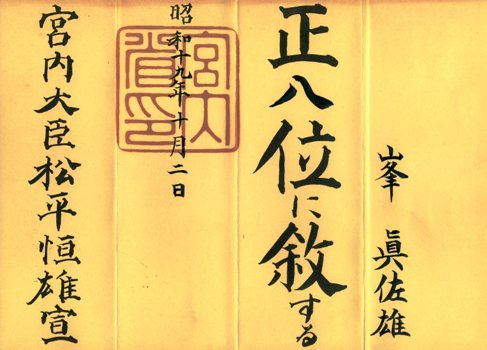 峯 眞佐雄
正八位に敘する
昭和十九年十月二日
宮内省印
宮内大臣松平恒雄宣